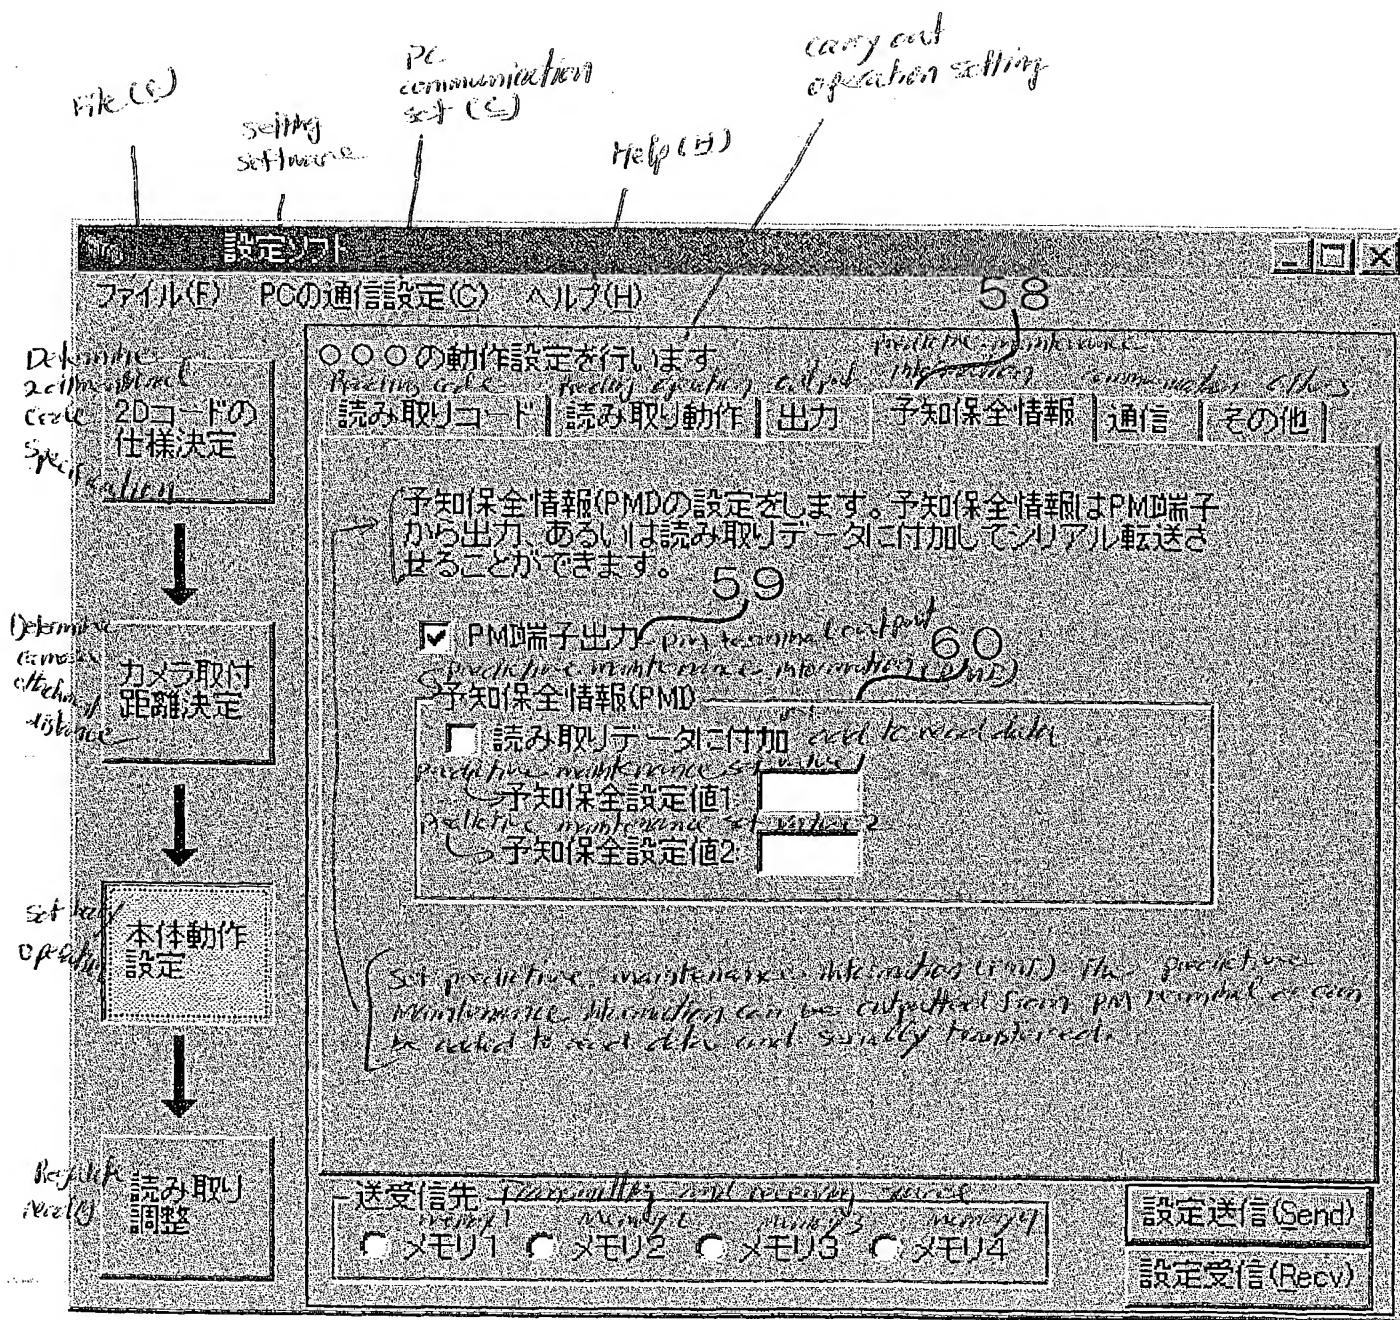 File (F)
setting
software
PC
communication
set (C)
Help (H)
carry out
operation setting
設定ソフト
ファイル(F) PCの通信設定(C) ヘルプ(H)
58
○○○の動作設定を行います
predictive maintenance
Reading code Reading operation output information communication others
読み取りコード 読み取り動作 出力 予知保全情報 通信 その他
Determine
code
Specification
2Dコードの
仕様決定
予知保全情報(PMI)の設定をします。予知保全情報はPM端子
から出力、あるいは読み取りデータに付加してシリアル転送さ
せることができます。
59
PM端子出力 pm terminal output
60
predictive maintenance information (PMI)
予知保全情報(PMI)
読み取りデータに付加 add to read data
predictive maintenance set value 1
予知保全設定値1
predictive maintenance set value 2
予知保全設定値2
Determine
camera
attachment
distance
カメラ取付
距離決定
Set body
operation
本体動作
設定
Set predictive maintenance information (PMI). The predictive
maintenance information can be outputted from pm terminal or can
be added to read data and serially transferred.
Regulate
reading
読み取り
調整
送受信先 Transmitting and receiving source
memory1 memory2 memory3 memory4
メモリ1 メモリ2 メモリ3 メモリ4
設定送信(Send)
設定受信(Recv)